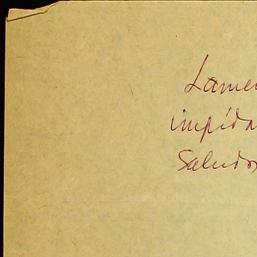 Lamen
impida
Saludos